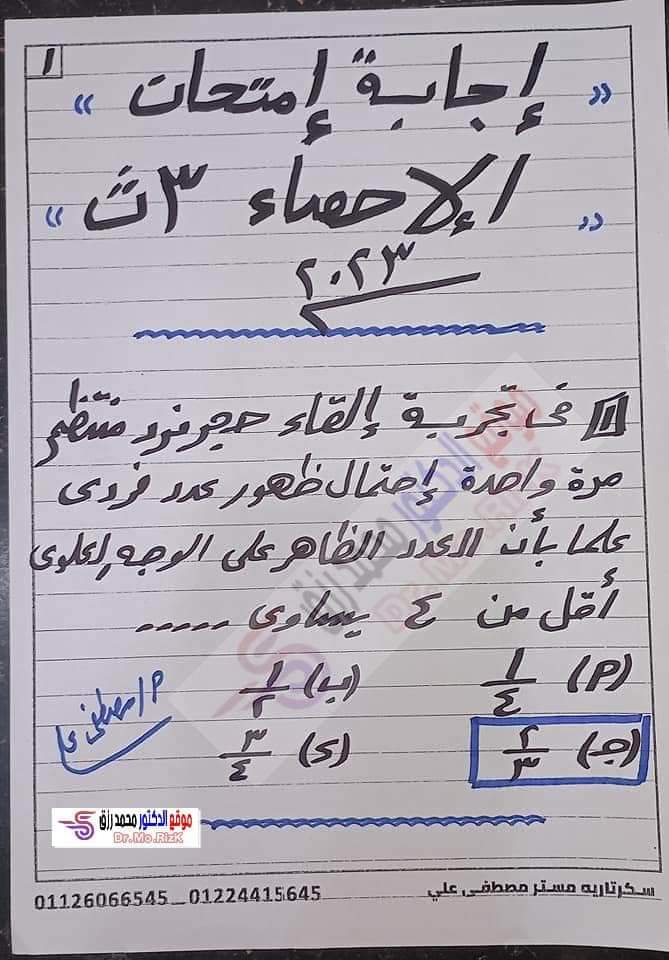 ١
« إجابة إمتحان »
« الإحصاء ٣ث »
٢٠٢٣
١ فى تجربة إلقاء حجر نرد منتظم
مرة واحدة إحتمال ظهور عدد فردى
علما بأن العدد الظاهر على الوجه العلوى
أقل من ٤ يساوى .....
(P) ١/٤ (ب) ١/٢
(جـ) ٢/٣ (د) ٣/٤
م/مصطفى على
موقع الدكتور محمد رزق
Dr.Mo.RizK
سكرتاريه مستر مصطفى علي 01224415645 _ 01126066545